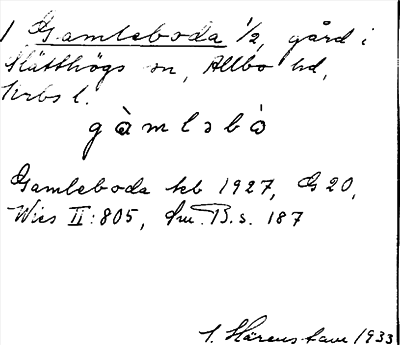 1 Gamleboda 1/2, gård i
Slätthögs sn, Allbo hd,
Krbs l.
gàmləbò
Gamleboda kb 1927, G 20,
Wies II:805, Sm. B. s. 187
1933